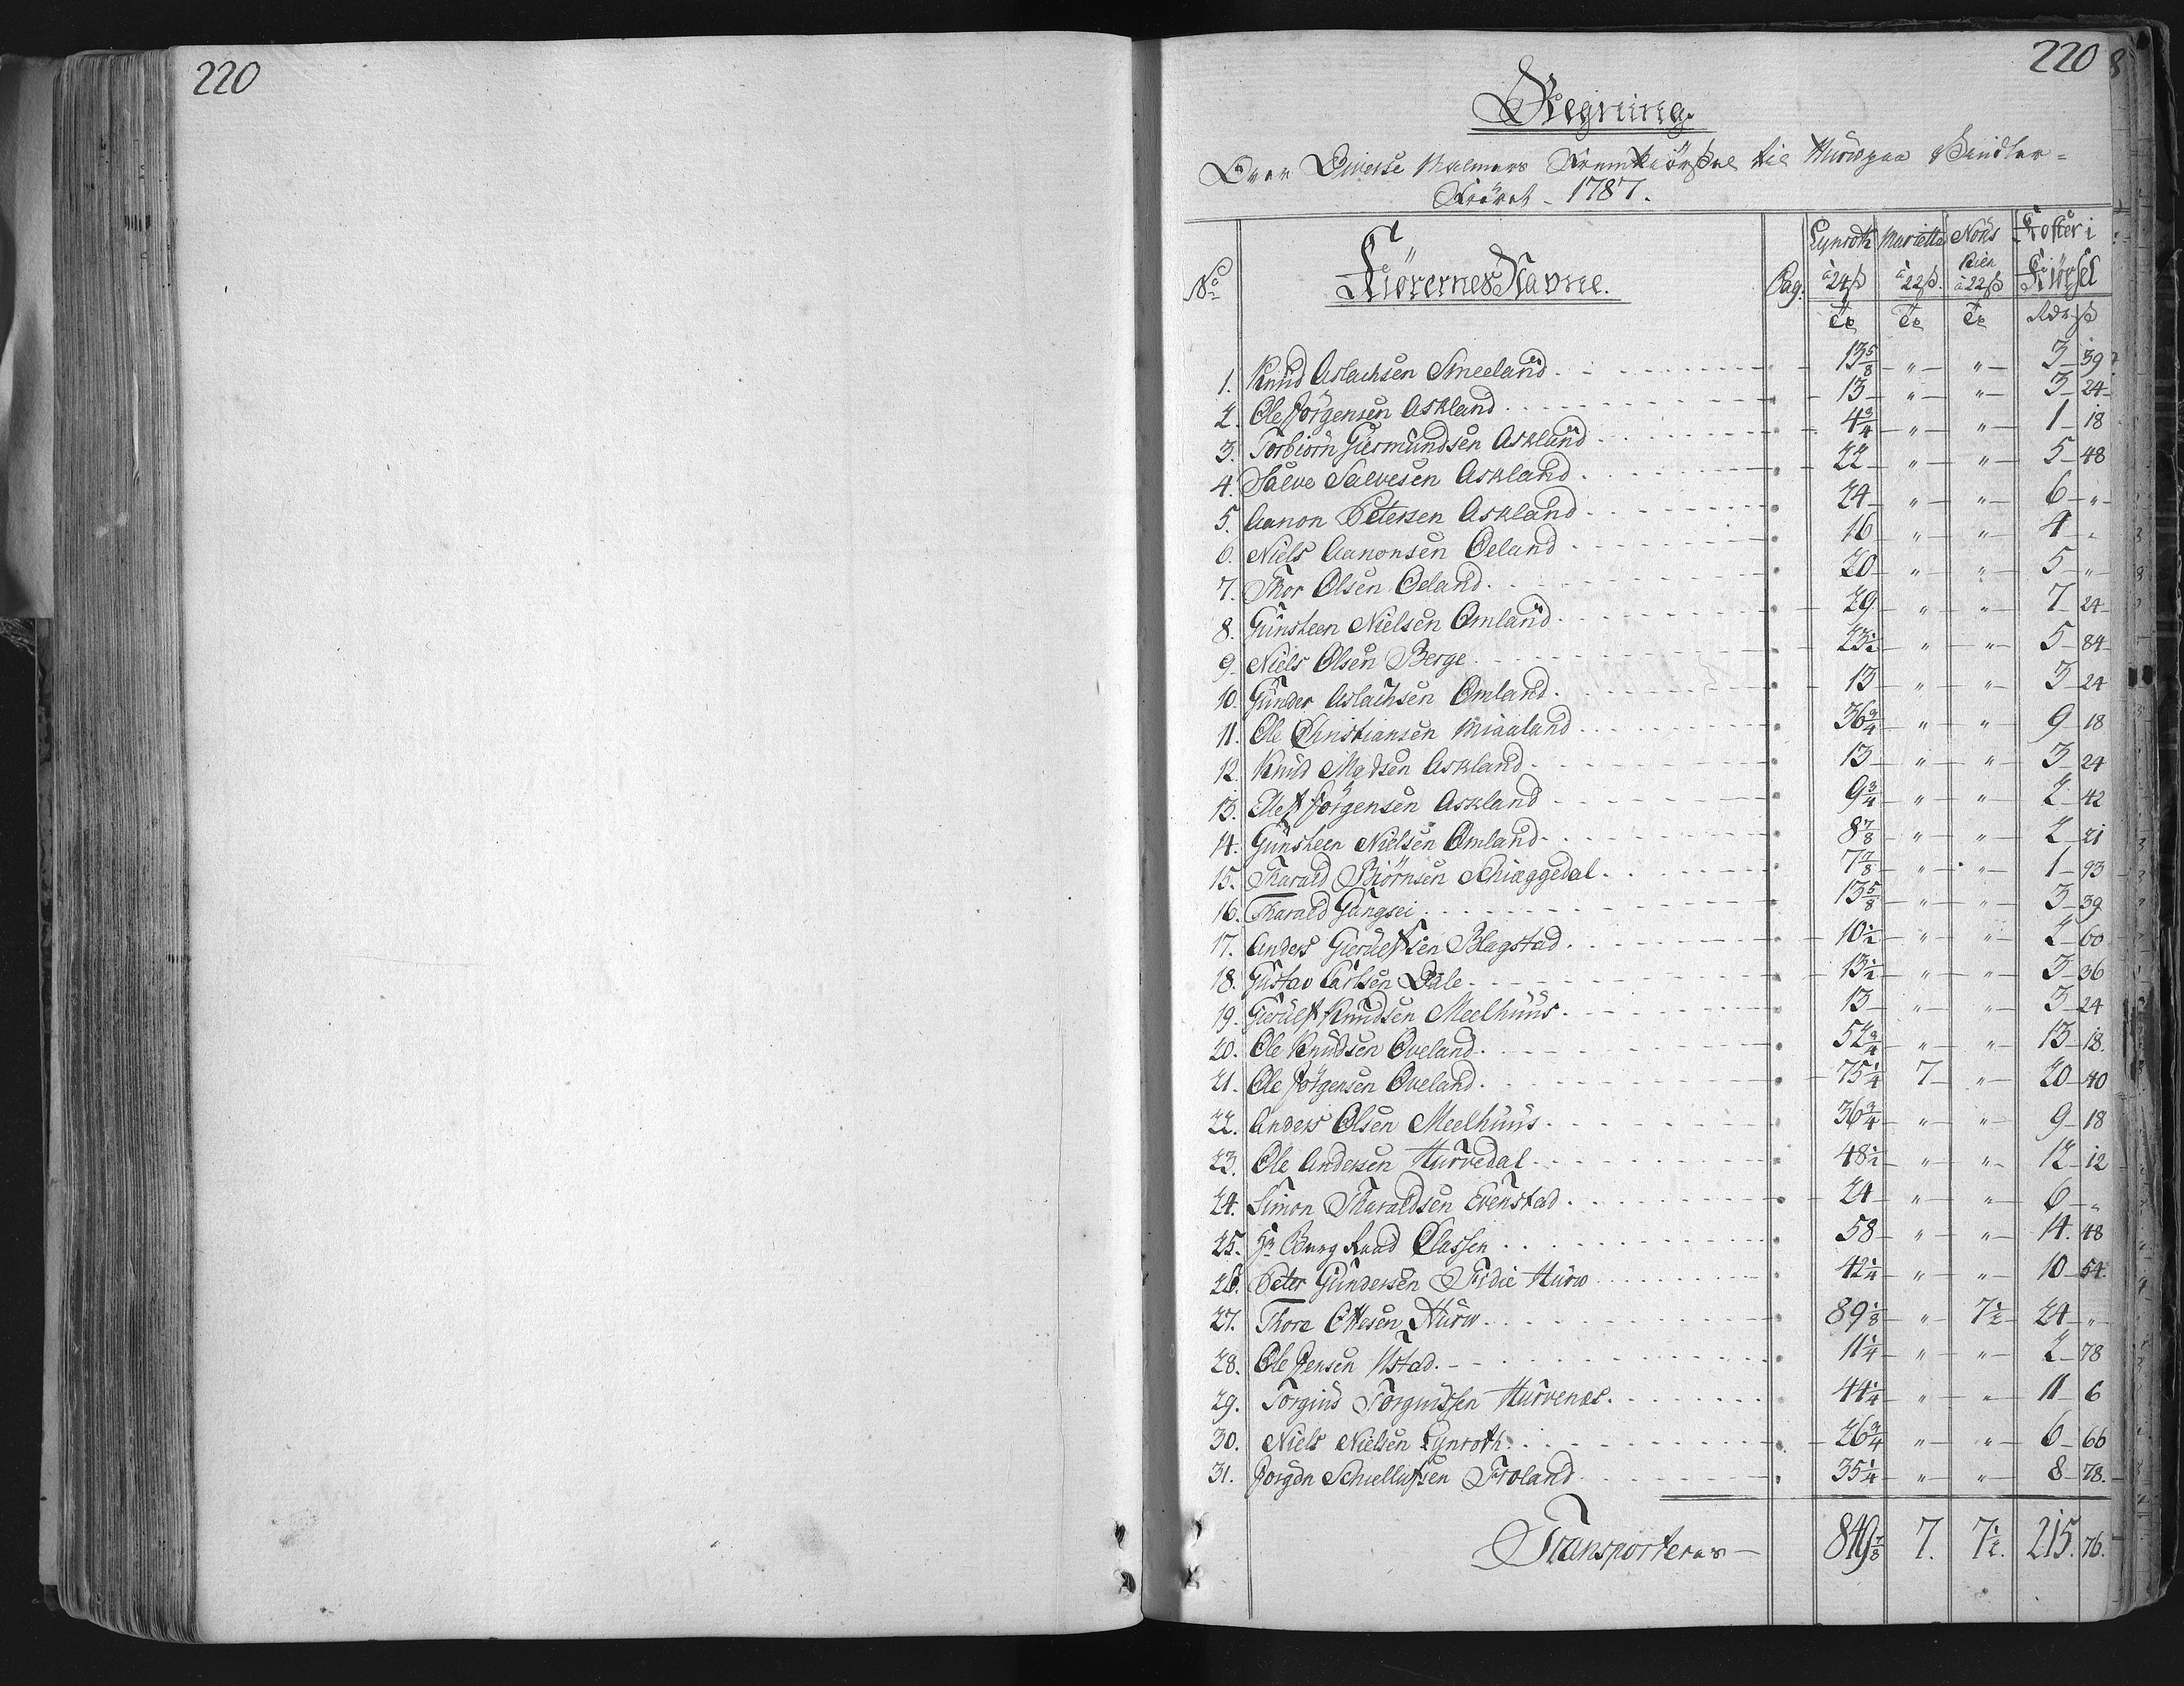 220
220
Regning.
Over Diverse Malmers Fremkiørsel til Hurv paa Vinter=
Føret 1787.
No Kiørernes Navne. Pag. Lynroth à 24ß Marietta à 22ß Nøds Kien à 22ß Koster i Kiørsel
Tr Tr Tr Rdr ß
1. Knud Aslachsen Smeeland 13 5/8 " " 3 39
2. Ole Jörgensen Askland 13 " " 3 24
3. Torbiörn Giermundsen Askland 4 3/4 " " 1 18
4. Salve Salvesen Askland 22 " " 5 48
5. Aanon Petersen Askland 24 " " 6 "
6. Niels Aanonsen Oeland 16 " " 4 "
7. Thor Olsen Oeland 20 " " 5 "
8. Gunsteen Nielsen Omland 29 " " 7 24
9. Niels Olsen Berge 23 1/2 " " 5 84
10. Gunder Aslachsen Omland 13 " " 3 24
11. Ole Christiansen Miaaland 36 3/4 " " 9 18
12. Knud Madsen Askland 13 " " 3 24
13. Ole Jörgensen Askland 9 3/4 " " 2 42
14. Gunsteen Nielsen Omland 8 7/8 " " 2 21
15. Tharald Biörnsen Schiæggedal 7 7/8 " " 1 93
16. Tharald Gangsei 13 5/8 " " 3 39
17. Anders Gierulfsen Blagstad 10 1/2 " " 2 60
18. Gustav Carlsen Dale 13 1/2 " " 3 36
19. Gierulf Knudsen Meelhuus 13 " " 3 24
20. Ole Knudsen Oveland 52 3/4 " " 13 18.
21. Ole Jörgensen Oveland 75 1/4 7 " 20 40
22. Anders Olsen Meelhuus 36 3/4 " " 9 18
23. Ole Andersen Hurvedal 48 1/2 " " 12 12
24. Simon Tharaldsen Evenstad 24 " " 6 "
25. Hr Berg Raad Classen 58 " " 14. 48
26. Peter Gundersen Fridie Hurv 42 1/4 " " 10 54.
27. Thore Ottesen Hurv 89 1/8 " 7 1/2 24 "
28. Ole Jensen Ustad 11 1/4 " " 2 78
29. Torgius Torgiussen Hurvenes 44 1/4 " " 11 6
30. Niels Nielsen Lynroth 26 3/4 " " 6 66
31. Jörgen Schiellufsen Froland 35 1/4 " " 8 78.
Transporteres 849 7/8 7. 7 1/2. 215. 76.